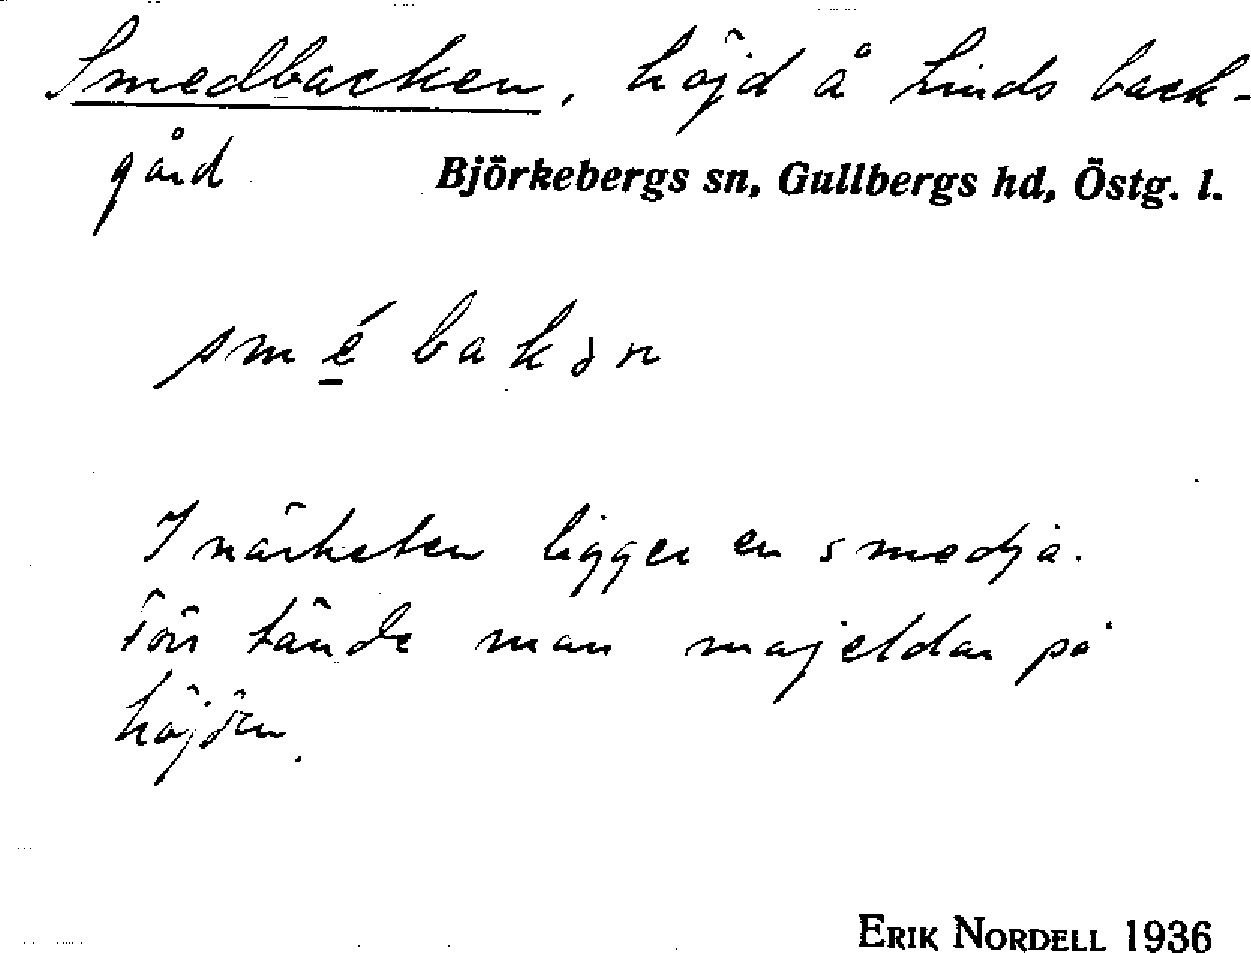 Smedbacken, höjd å Linds back-
gård
Björkebergs sn, Gullbergs hd, Östg. l.
smé̠bakən
I närheten ligger en smedja.
Förr tände man majeldar på
höjden.
ERIK NORDELL 1936